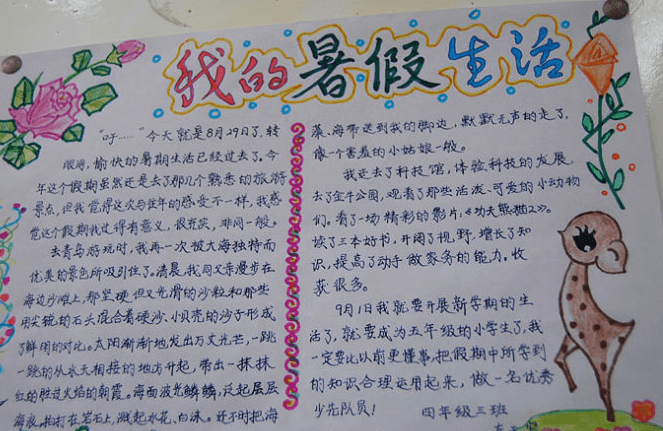 我的暑假生活
“吁……”今天就是8月29日了,转
眼间,愉快的暑期生活已经过去了。今
年这个假期虽然还是去了那几个熟悉的旅游
景点,但我觉得这次与往年的感受不一样,我感
觉这个假期我过得有意义、很充实,非同一般。
去青岛游玩时,我再一次被大海独特而
优美的景色所吸引住了。清晨,我同父亲漫步在
海边沙滩上,那坚硬但又光滑的沙粒和那些
用尖锐的石头混合着硬沙、小贝壳的沙子形成
了鲜明的对比。太阳渐渐地发出万丈光芒,一跳
一跳的从水天相接的地方升起,带出一抹抹
红的胜过火焰的朝霞。海面波光鳞鳞,泛起层层
海浪,拍打在岩石上,溅起水花、白沫。还不时把海
藻、海带送到我的脚边,默默无声的走了,
像一个害羞的小姑娘一般。
我还去了科技馆,体验科技的发展,
去了金牛公园,观看了那些活泼、可爱的小动物
们,看了一场精彩的影片,《功夫熊猫2》。
读了三本好书,开阔了视野,增长了知
识,提高了动手做家务的能力,收
获很多。
9月1日我就要开展新学期的生
活了,就要成为五年级的小学生了,我
一定要比以前更懂事,把假期中所学到
的知识合理运用起来,做一名优秀
少先队员!
四年级三班